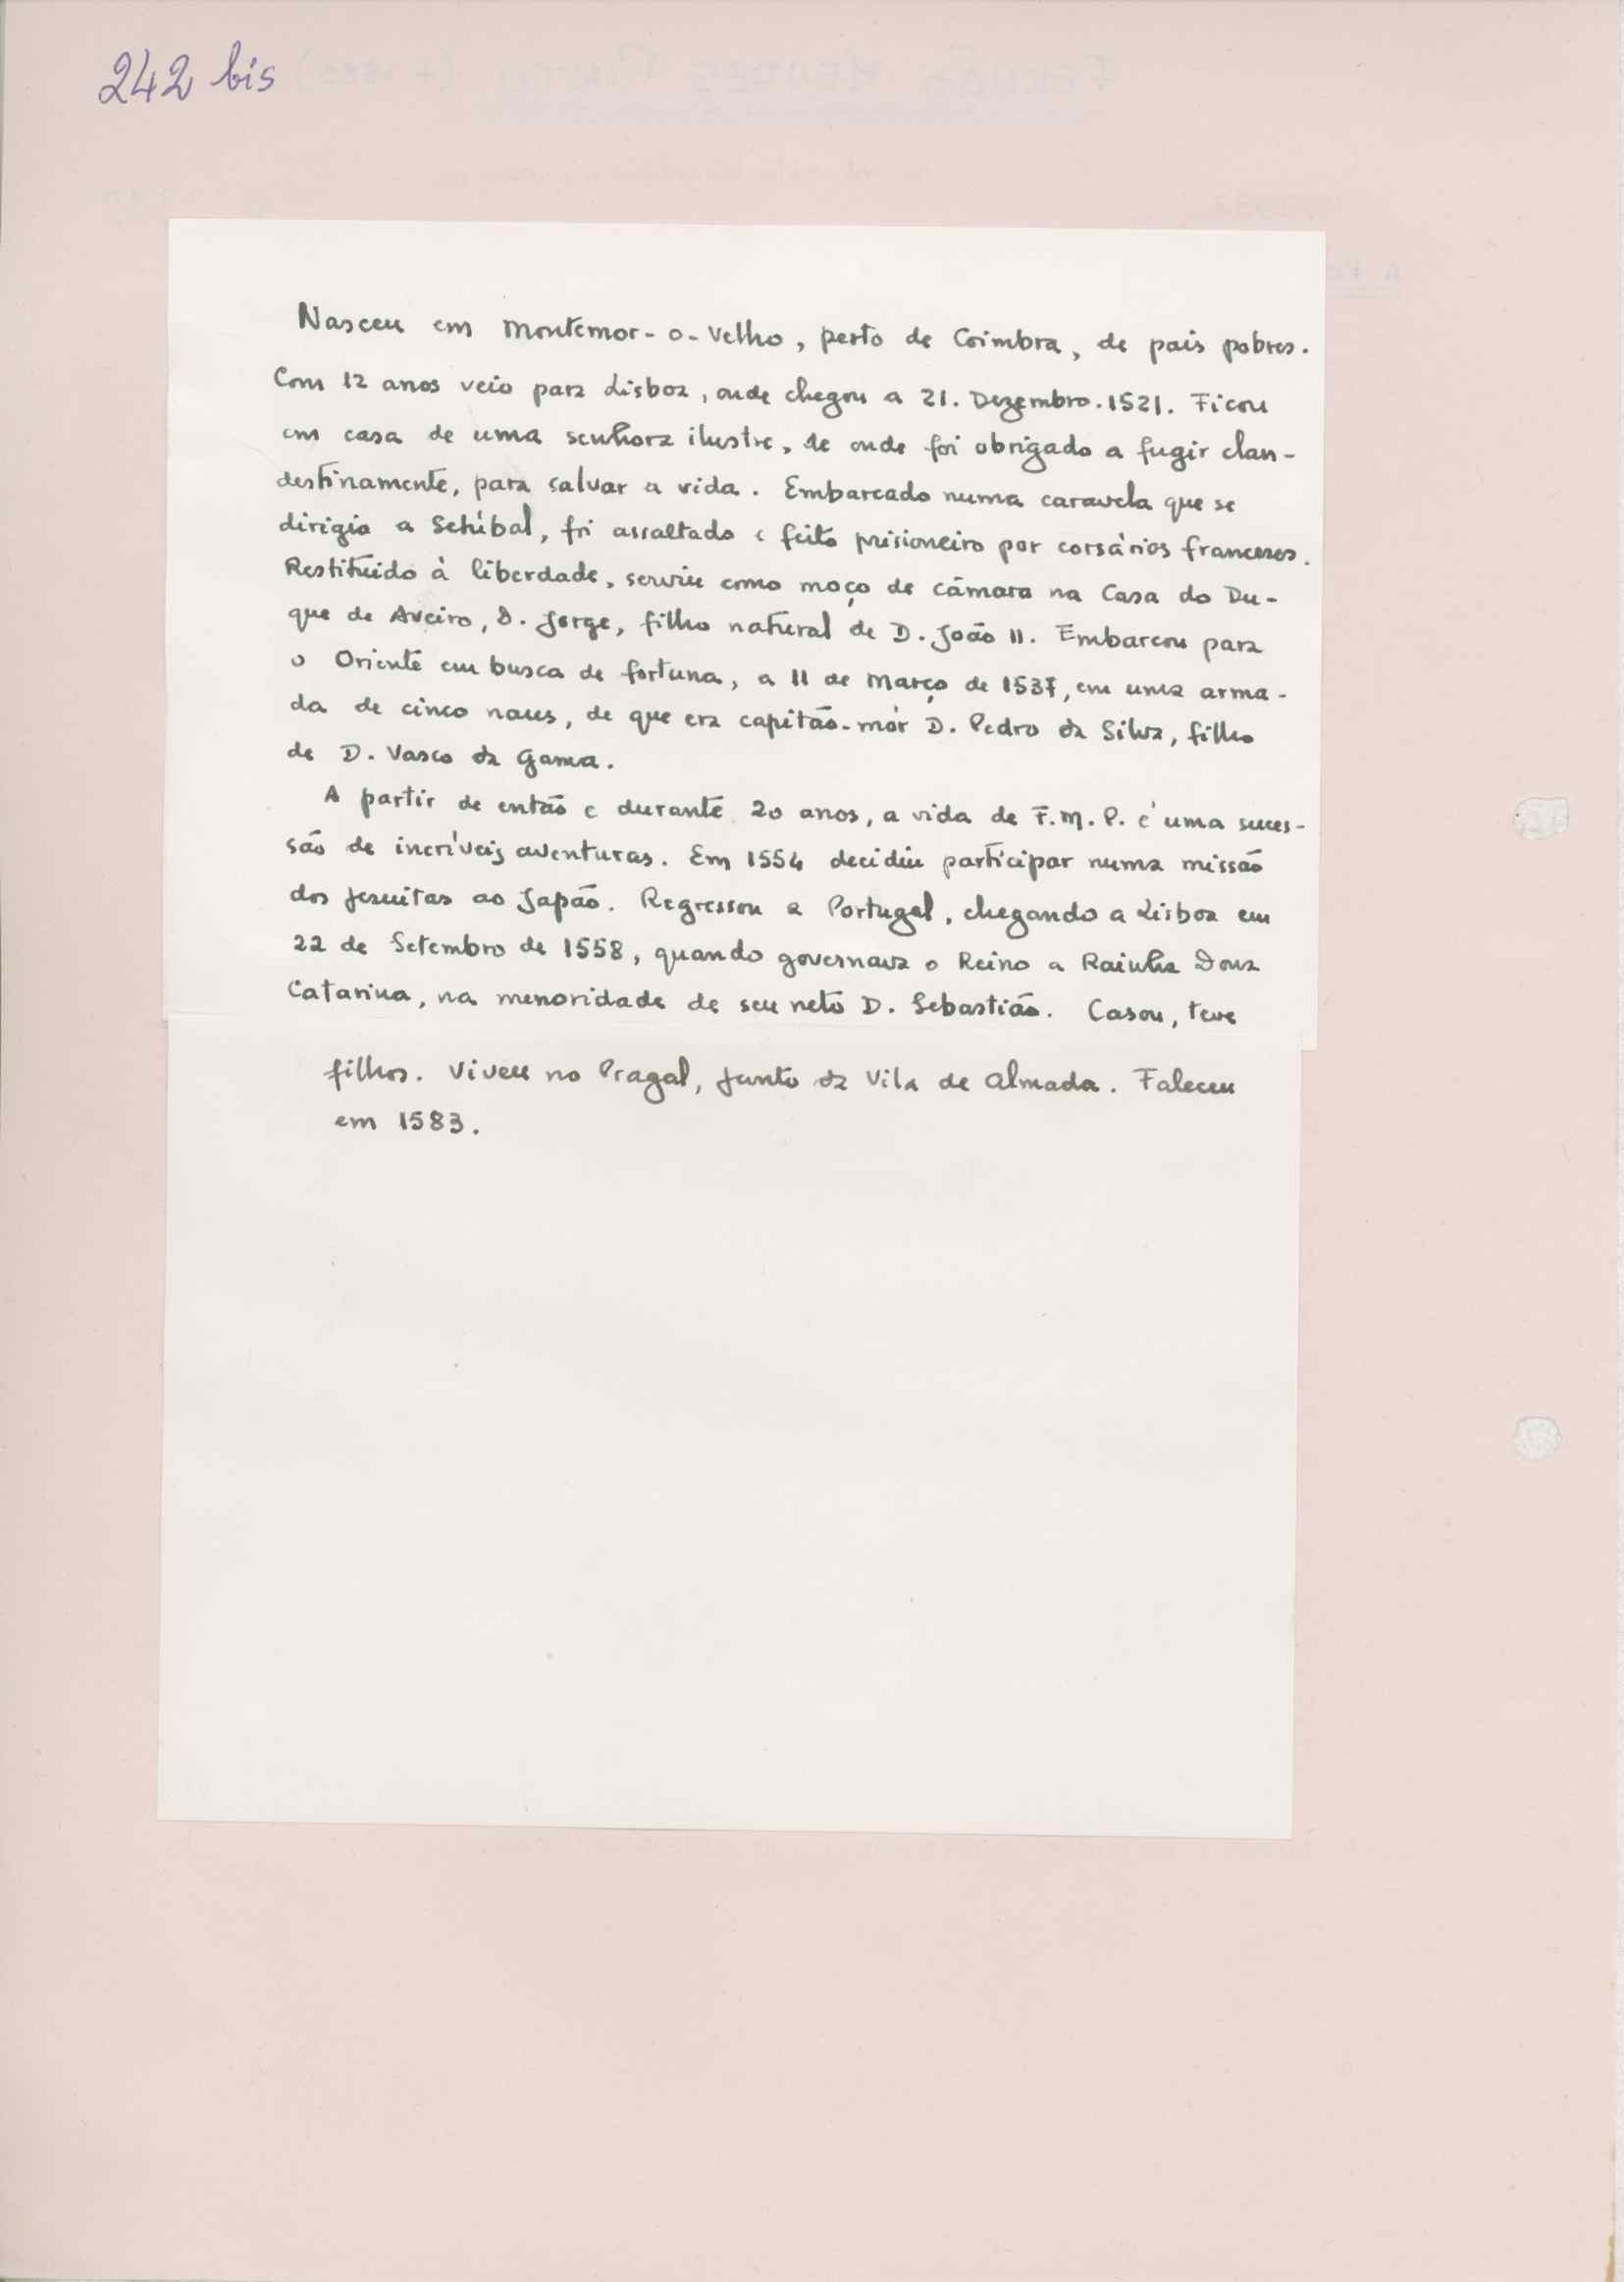 242 bis
Nasceu em Montemor-o-Velho, perto de Coimbra, de pais pobres.
Com 12 anos veio para Lisboa, onde chegou a 21. Dezembro. 1521. Ficou
em casa de uma senhora ilustre, de onde foi obrigado a fugir clan-
destinamente, para salvar a vida. Embarcado numa caravela que se
dirigia a Setúbal, foi assaltado e feito prisioneiro por corsários franceses.
Restituído à liberdade, serviu como moço de câmara na Casa do Du-
que de Aveiro, D. Jorge, filho natural de D. João II. Embarcou para
o Oriente em busca de fortuna, a 11 de Março de 1537, em uma arma-
da de cinco naus, de que era capitão-mór D. Pedro da Silva, filho
de D. Vasco da Gama.
A partir de então e durante 20 anos, a vida de F.M.P. é uma suces-
são de incríveis aventuras. Em 1554 decidiu participar numa missão
dos jesuítas ao Japão. Regressou a Portugal, chegando a Lisboa em
22 de Setembro de 1558, quando governava o Reino a Rainha Dona
Catarina, na menoridade de seu neto D. Sebastião. Casou, teve
filhos. Viveu no Pragal, junto da Vila de Almada. Faleceu
em 1583.